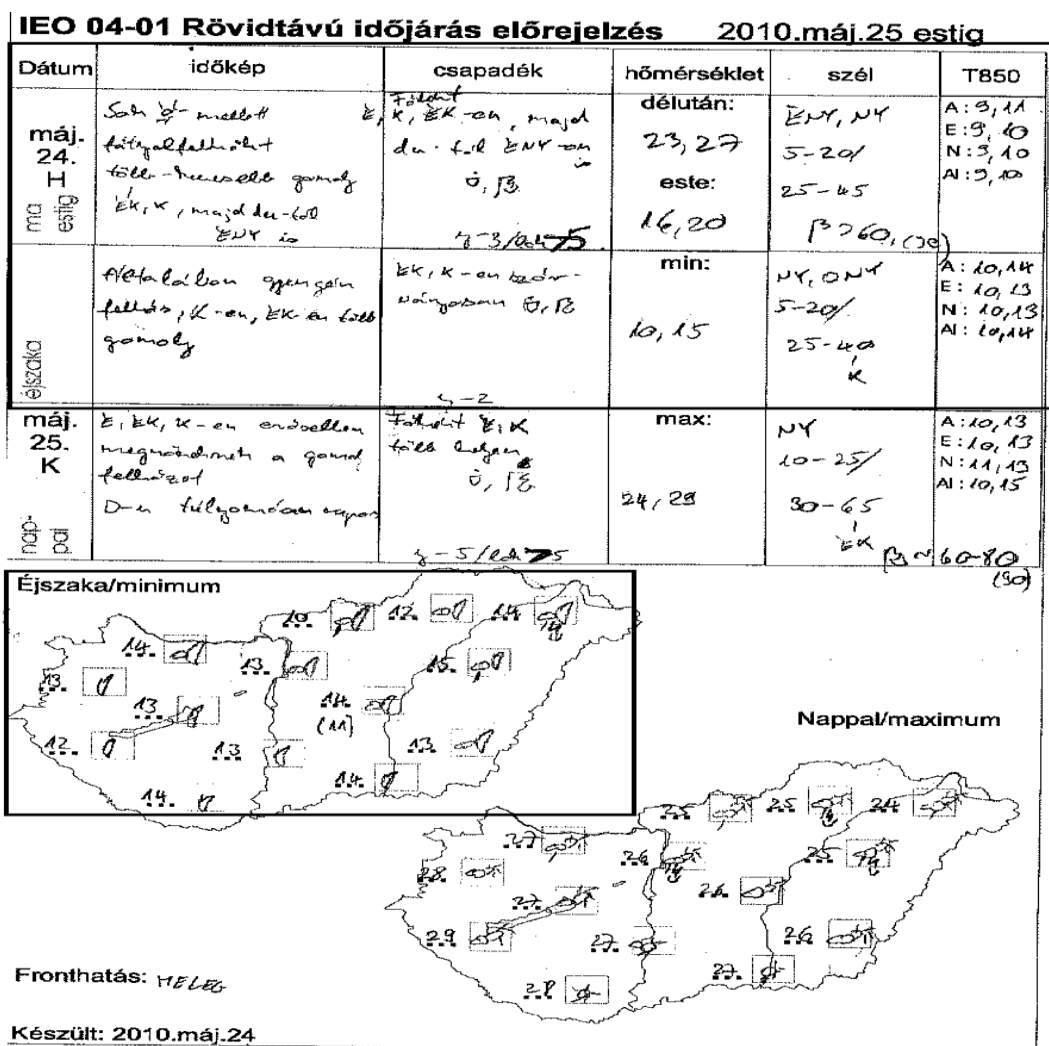 IEO 04-01 Rövidtávú időjárás előrejelzés 2010.máj.25 estig
Dátum időkép csapadék hőmérséklet szél T850
máj. 24. H
ma estig
Sok mellett
fátyolfelhőzet
több-kevesebb gomoly
ÉK, K, majd du-tól
ÉNY is
Főként
É, K, ÉK-en, majd
du-tól ÉNY-on
is
délután:
23, 27
este:
16, 20
ÉNY, NY
5-20/
25-45
A: 9, 11
E: 9, 10
N: 9, 10
Al: 9, 10
éjszaka
Általában gyengén
felhős, K-en, ÉK-en több
gomoly
ÉK, K-en
min:
10, 15
NY, DNY
5-20/
25-40
K
A: 10, 14
E: 10, 13
N: 10, 13
Al: 10, 14
máj. 25. K
nap-pal
É, ÉK, K-en erősebben
megnövekszik a gomoly
felhőzet
D-n túlnyomóan napos
Főként É, K
több helyen
max:
24, 29
NY
10-25/
30-65
ÉK
60-80
(90)
A: 10, 13
E: 10, 13
N: 11, 13
Al: 10, 15
Éjszaka/minimum
10. 12. 14.
14. 13. 15.
13. 13. 14. (11)
12. 13. 13.
14. 14.
Nappal/maximum
25 25 24
27 26 25
28 27 26
29 27 26
28 27
Fronthatás: MELEG
Készült: 2010.máj.24